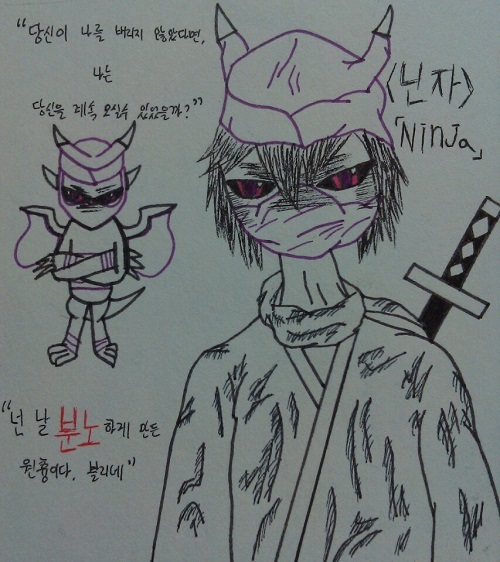 "당신이 나를 버리지 않았다면,
나는
당신을 계속 모실수 있었을까?"
<닌자>
「Ninja」
"넌 날 분노하게 만든
원흉이다, 블리네"